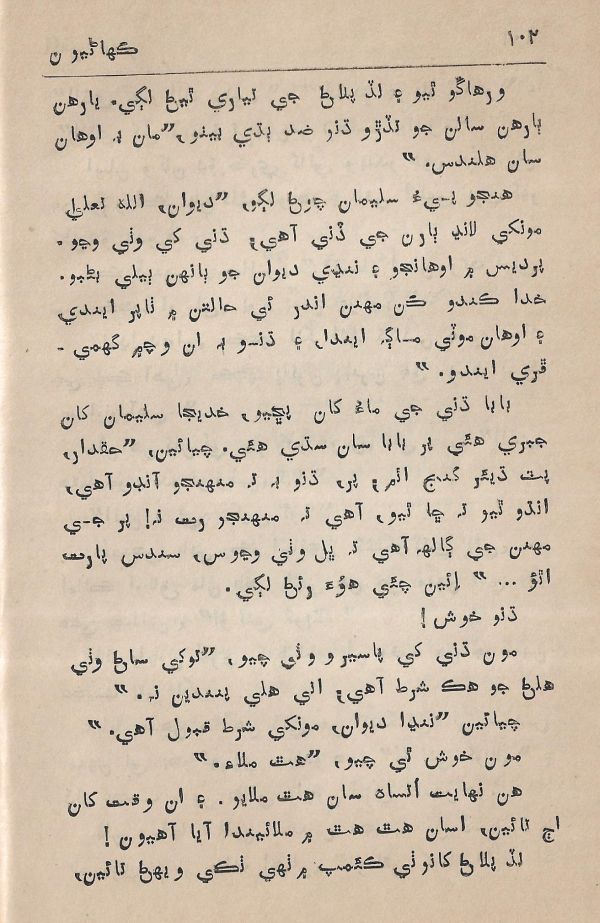 ١٠٢
ڪهاڻيون
ورهاڱو ٿيو ۽ لڏ پلاڻ جي تياري ٿيڻ لڳي. ٻارهن
ٻارهن سالن جو ننڍڙو ڏنو ضد ٻڌي بيٺو, ”مان بہ اوهان
سان هلندس.“
هنجو پيءُ سليمان چوڻ لڳو, ”ديوان, الله تعليٰ
مونکي لاتعداد ٻارن جي ڏني آهي; ڏني کي وٺي وڃو.
پرديس ۾ اوهانجو ۽ ننڍي ديوان جو ٻانهن ٻيلي بڻبو.
خدا ڪندو ڪن مهنن اندر ئي حالتن ۾ ٺاپر ايندي
۽ اوهان موٽي ماڳ ايندا, ۽ ڏنو بہ ان وچ ۾ گهمي-
ڦري ايندو.“
بابا ڏني جي ماءُ کان پڇيو, خديجا سليمان کان
جبري هئي پر بابا سان سڌي هئي. چيائين, ”حقدار,
پٽ ڏيئر گنج اٿم; پر, ڏنو بہ تہ منهنجو آندو آهي,
انڌو ٿيو تہ ڇا ٿيو, آهي تہ منهنجو رت نہ! پر جي
مهنن جي ڳالهہ آهي تہ ڀل وٺي وڃوس, سندس پارت
اٿو ... “ اِئين چئي هوءَ رئڻ لڳي.
ڏنو خوش!
مون ڏني کي پاسيرو وٺي چيو, ”توکي ساڻ وٺي
هلڻ جو هڪ شرط آهي; اتي هلي پنندين نہ.“
چيائين ”ننڍا ديوان, مونکي شرط قبول آهي.“
مون خوش ٿي چيو, ”هٿ ملاءِ.“
هن نهايت اُتساهہ سان هٿ ملايو. ۽ ان وقت کان
اڄ تائين, اسان هٿ هٿ ۾ ملائيندا آيا آهيون!
لڏ پلاڻ کانوٺي ڪئمپ ۾ ٺهي ٺڪي ويهڻ تائين,